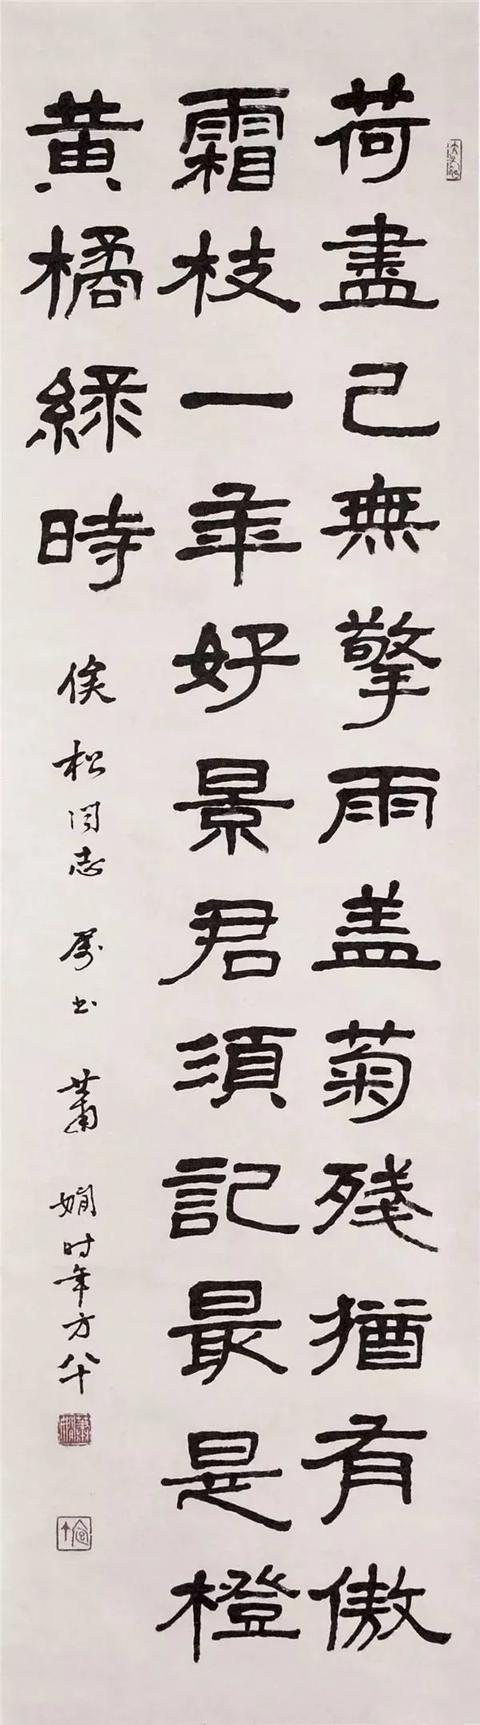 荷盡已無擎雨盖菊殘猶有傲
霜枝一年好景君須記最是橙
黄橘緑時
俟松同志 属书 萧娴时年方八十